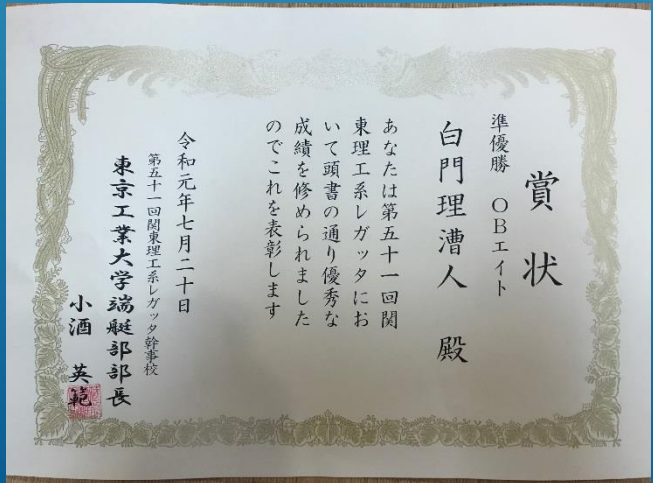 賞状
準優勝　OBエイト
白門理漕人　殿
あなたは第五十一回関
東理工系レガッタにお
いて頭書の通り優秀な
成績を修められました
のでこれを表彰します
令和元年七月二十日
第五十一回関東理工系レガッタ幹事校
東京工業大学端艇部部長
小酒　英範